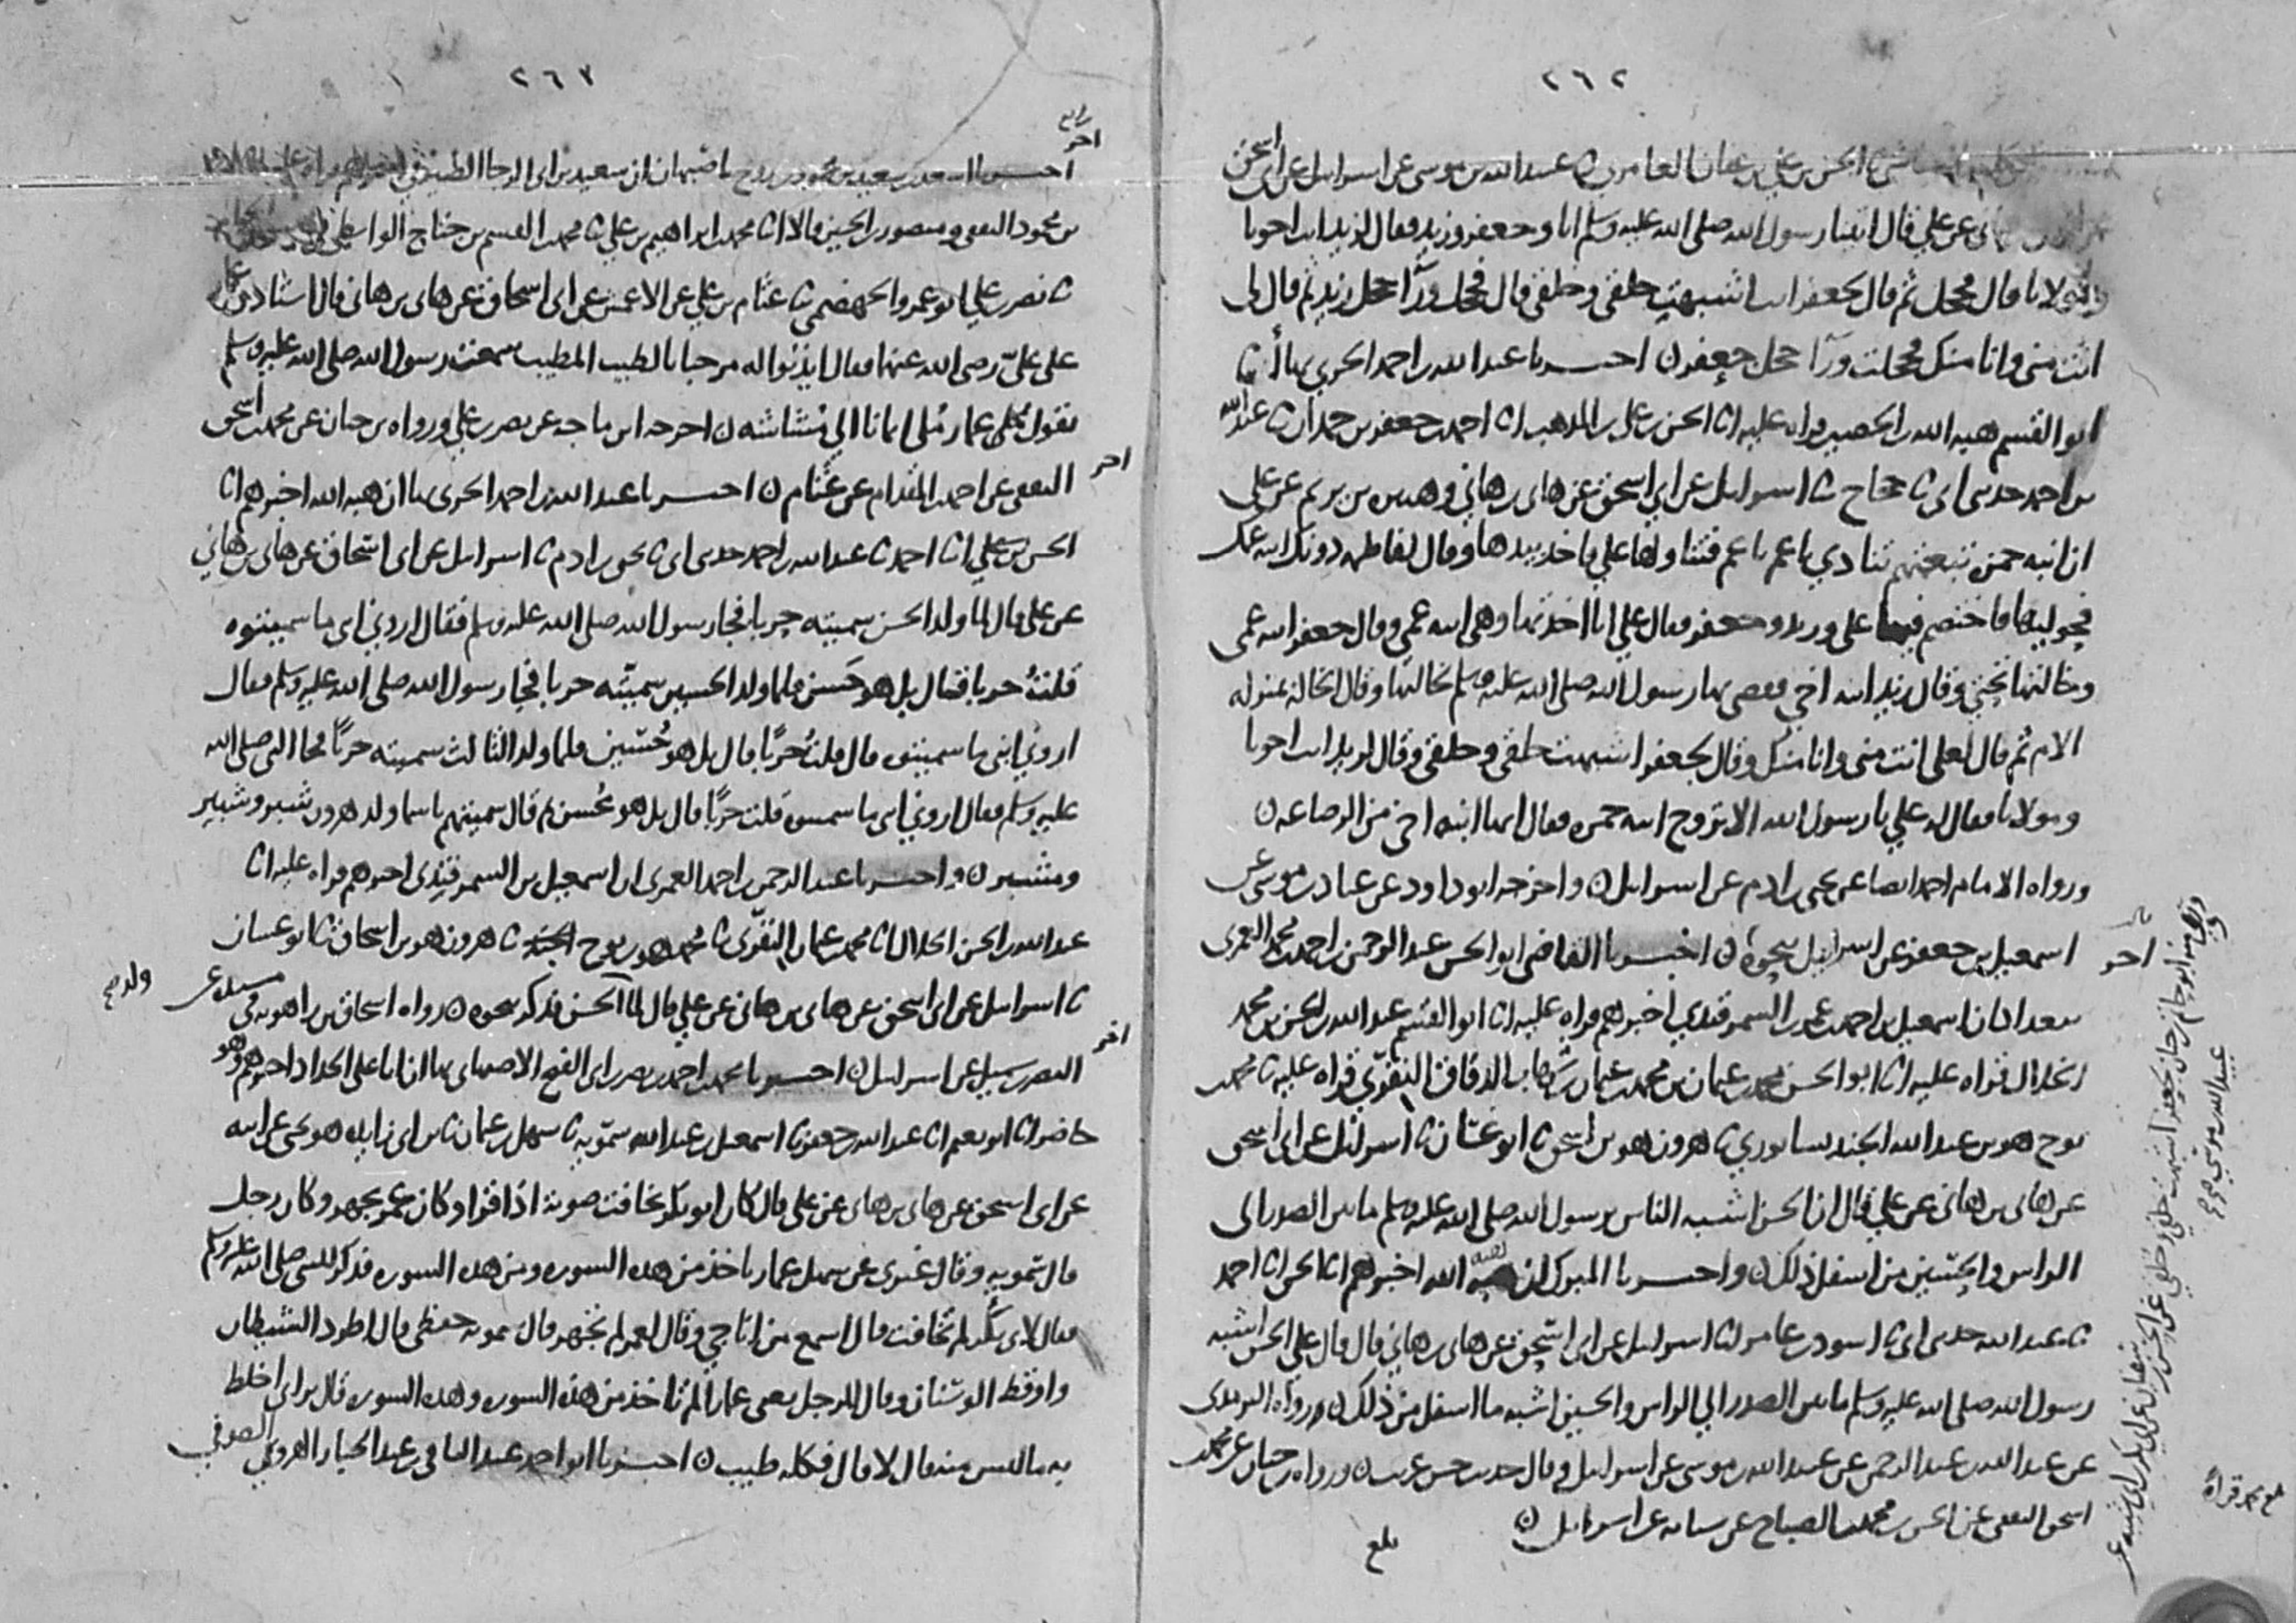 ٢٦٢
الحسن بن علي بن عفان العامري ثنا عبيد الله بن موسى عن اسرائيل عن ابي اسحق
عن علي قال اتينا رسول الله صلى الله عليه وسلم انا وجعفر وزيد فقال لزيد انت اخونا
ومولانا قال فحجل ثم قال لجعفر انت اشبهت خلقي وخلقي قال فحجل ورآ حجل زيد ثم قال لي
انت مني وانا منك فحجلت ورآ حجل جعفر ن اخبرنا عبد الله بن احمد الحربي بها أن
ابو القسم هبه الله بن الحصين قراه عليه انا الحسن بن علي بن المذهب انا احمد بن جعفر بن حمدان ثنا عبد الله
بن احمد حدثني ابي ثنا حجاج ثنا اسرائيل عن ابي اسحق عن هاني بن هاني وهبيره بن يريم عن علي
ان ابنه حمزه تبعتهم تنادي يا عم يا عم فتناولها علي فاخذ بيدها وقال لفاطمه دونك ابنه عمك
فحوليها فاختصم فيها علي وزيد وجعفر فقال علي انا اخذتها وهي ابنه عمي وقال جعفر ابنه عمي
وخالتها تحتي وقال زيد ابنه اخي فقضى بها رسول الله صلى الله عليه وسلم لخالتها وقال الخاله بمنزله
الام ثم قال لعلي انت مني وانا منك وقال لجعفر اشبهت خلقي وخلقي وقال لزيد انت اخونا
ومولانا فقال له علي يا رسول الله الا تزوج ابنه حمزه فقال انها ابنه اخي من الرضاعه ن
ورواه الامام احمد ايضا عن يحيى بن ادم عن اسرائيل ن واخرجه ابو داود عن عباد بن موسى عن
اسمعيل بن جعفر عن اسرائيل بنحوه ن اخبرنا القاضي ابو الحسن عبد الرحمن بن احمد بن محمد العمري
اخر
ببغداد ان اسمعيل بن احمد بن عمر السمرقندي اخبرهم قراه عليه انا ابو القسم عبد الله بن الحسن بن محمد
الخلال قراه عليه انا ابو الحسن محمد بن عثمان بن محمد بن عثمان بن شهاب الدقاق النفّري قراه عليه ثنا محمد بن
نوح هو بن عبد الله الجنديسابوري ثنا هرون هو بن اسحق ثنا ابو غسان ثنا اسرائيل عن ابي اسحق
عن هاني بن هاني عن علي قال ان الحسن اشبه الناس برسول الله صلى الله عليه وسلم ما بين الصدر الى
الراس والحسين من اسفل ذلك ن واخبرنا المبارك ان هبه الله اخبرهم انا الحسن انا احمد
ثنا عبد الله حدثني ابي ثنا اسود بن عامر انا اسرائيل عن ابي اسحق عن هاني بن هاني قال قال علي الحسن اشبه
رسول الله صلى الله عليه وسلم ما بين الصدر الي الراس والحسين اشبه ما اسفل من ذلك ن ورواه الترمذي
عن عبد الله بن عبد الرحمن عن عبيد الله بن موسى عن اسرائيل وقال حديث حسن غريب ن ورواه بن حبان عن محمد بن
اسحق الثقفي عن الحسن بن محمد بن الصباح عن شبابه عن اسرائيل ن
بلغ
٢٦٧
اخر
اخبرنا اسعد بن سعيد بن محمود بن روح باصبهان ان سعيد بن ابي الرجا
بن محمود الثقفي ومنصور بن الحسين قالا انا محمد بن ابراهيم بن علي ثنا محمد بن القسم بن حناج الواسطي
ثنا نصر بن علي ابو عمرو الجهضمي ثنا عثام بن علي عن الاعمش عن ابي اسحاق عن هاني بن هاني قال استاذن عمار
على عليّ رضي الله عنهما فقال ايذنوا له مرحبا بالطيب المطيب سمعت رسول الله صلى الله عليه وسلم
يقول مُلى عمار مُلى ايمانا الي مُشاشه ن اخرجه ابن ماجه عن نصر بن علي ورواه بن حبان عن محمد بن اسحق
الثقفي عن احمد بن المقدام عن عثام ن اخبرنا عبد الله بن احمد الحربي بها ان هبه الله اخبرهم انا
اخر
الحسن بن علي انا احمد ثنا عبد الله بن احمد حدثني ابي ثنا يحيى بن ادم ثنا اسرائيل عن ابي اسحاق عن هاني بن هاني
عن علي قال لما ولد الحسن سميته حربا فجا رسول الله صلى الله عليه وسلم فقال اروني ابني ما سميتموه
قلتُ حربا فقال بل هو حَسن فلما ولد الحسين سميته حربا فجا رسول الله صلى الله عليه وسلم فقال
اروني ابني ما سميتموه قال قلتُ حربًا قال بل هو حُسَين فلما ولد الثالث سميته حربًا فجا النبي صلى الله
عليه وسلم فقال اروني ابني ما سميتموه قلت حربًا قال بل هو مُحسن ثم قال سميتهم باسما ولد هرون شبر وشبير
ومشبر ن واخبرنا عبد الرحمن بن احمد العمري ان اسمعيل بن السمرقندي اخبرهم قراه عليه انا
عبد الله بن الحسن الخلال انا محمد بن عثمان النفّري ثنا محمد هو بن نوح ثنا هرون هو بن اسحاق ثنا ابو غسان
ثنا اسرائيل عن ابي اسحق عن هاني بن هاني عن علي قال لما الحسن فذكر نحوه ن رواه اسحاق بن راهويه في مسنده عن
ولد صح
النضر بن شميل عن اسرائيل ن اخبرنا محمد بن احمد بن نصر ابي الفتح الاصبهاني بها ان ابا علي الحداد اخبرهم وهو
اخر
حاضر انا ابو نعيم انا عبد الله بن جعفر ثنا اسمعيل بن عبد الله سمّويه ثنا سهل بن عثمان ثنا بن ابي زايده هو يحيى عن ابيه
عن ابي اسحق عن هاني بن هاني عن علي قال كان ابو بكر يخافت صوته اذا قرا وكان عمر يجهر وكان رجل
قال سمّويه وقال غيري عن سهل عمار ياخذ من هذه السوره ومن هذه السوره فذكر للنبي صلى الله عليه وسلم
فقال لابي بكر لم تخافت قال اسمع من اناجي وقال لعمر لم تجهر قال سمويه حفظي قال اطرد الشيطان
واوقظ الوسنان وقال للرجل يعني عمار لم تاخذ من هذه السوره وهذه السوره قال تراني اخلط
به ما ليس منه قال لا قال فكله طيب ن اخبرنا ابو احمد عبد الباقي بن عبد الجبار الهروي الصوفي